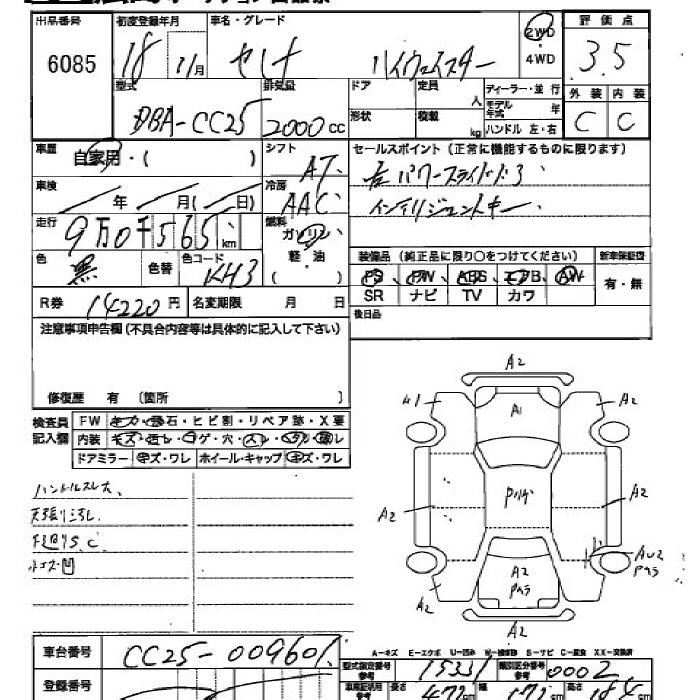 出品番号 初度登録年月 車名・グレード 評価点
6085 18年 11月 セレナ ハイウェイスター 2WD 3.5
4WD
型式 排気量 ドア 定員 人 ディーラー・並行 外装 内装
DBA-CC25 2000cc 形状 積載 kg モデル年式 年 C C
ハンドル 左・右
車歴 自家用・( ) シフト AT セールスポイント(正常に機能するものに限ります)
左パワースライドドア
車検 年 月( 日) 冷房 AAC インテリジェントキー
走行 9万0千565km 燃料 ガソリン
軽・油
( )
色 黒 色替 色コード KH3 装備品(純正品に限り○をつけてください) 新車保証書
PS PW ABS エアB AW 有・無
SR ナビ TV カワ
R券 14220円 名変期限 月 日
後日品
注意事項申告欄(不具合内容等は具体的に記入して下さい)
修復歴 有 〔箇所 〕
検査員 FW キズ・飛石・ヒビ割・リペア跡・X要
記入欄 内装
ドアミラー キズ・ワレ ホイール・キャップ キズ・ワレ
ハンドルスレ大
天張り汚れ
下廻りS.C
小キズ凹
A2
A1 A1 A2
A2 A2
A2 A2 AU2
A2
A2
A-キズ E-エクボ U-凹み W-補修跡 S-サビ C-腐食 XX-交換済
車台番号 CC25-009601 型式指定番号 参考 15331 類別区分番号 参考 0002
登録番号 長さ 472cm 幅 高さ cm